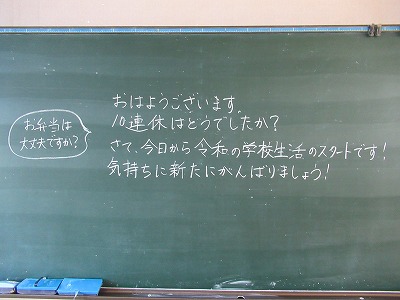 おはようございます。
10連休はどうでしたか？
さて、今日から令和の学校生活のスタートです！
気持ちに新たにがんばりましょう！
お弁当は
大丈夫ですか？